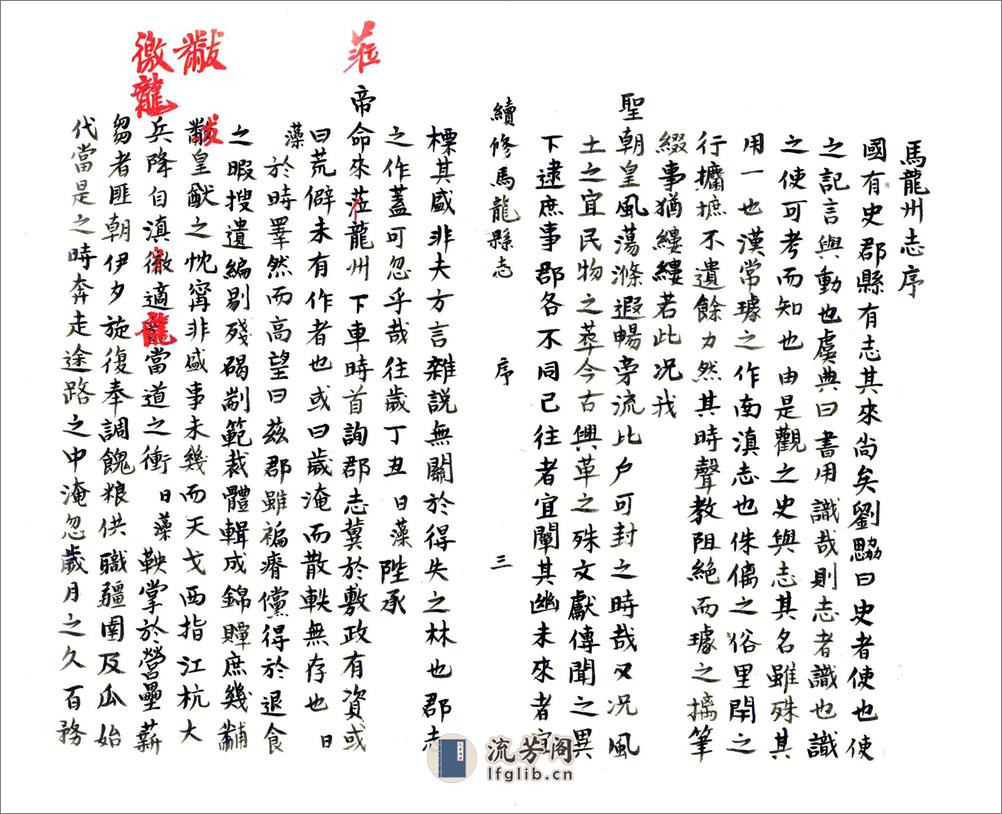 馬龍州志序
國有史郡縣有志其來尚矣劉勰曰史者使也使
之記言與動也虞典曰書用識哉則志者識也識
之使可考而知也由是觀之史與志其名雖殊其
用一也漢常璩之作南滇志也侏㒧之俗里閈之
行攟摭不遺餘力然其時聲教阻絕而璩之摛筆
綴事猶縷縷若此况我
聖朝皇風蕩滌遐暢旁流比户可封之時哉又况風
土之宜民物之莽今古興革之殊文獻傳聞之異
下逮庶事郡各不同已往者宜闡其幽未來者宜
續修馬龍縣志 序 三
標其盛非夫方言雜説無關於得失之林也郡志
之作蓋可忽乎哉往歲丁丑日藻陛承
帝命來蒞龍州下車時首詢郡志冀於敷政有資或
曰荒僻未有作者也或曰歲淹而散軼無存也日
藻於時睪然而高望曰兹郡雖褊瘠儻得於退食
之暇搜遺編剔殘碣剬範裁體輯成錦贉庶幾黼
黻皇猷之忱甯非盛事未幾而天戈西指江杭大
兵降自滇徼適龍當道之衝日藻鞅掌於營壘薪
芻者匪朝伊夕旋復奉調餽粮供職疆圉及瓜始
代當是之時奔走途路之中淹忽歲月之久百務
蒞
黻
徼龍
黻
龍
流芳阁
lfglib.cn